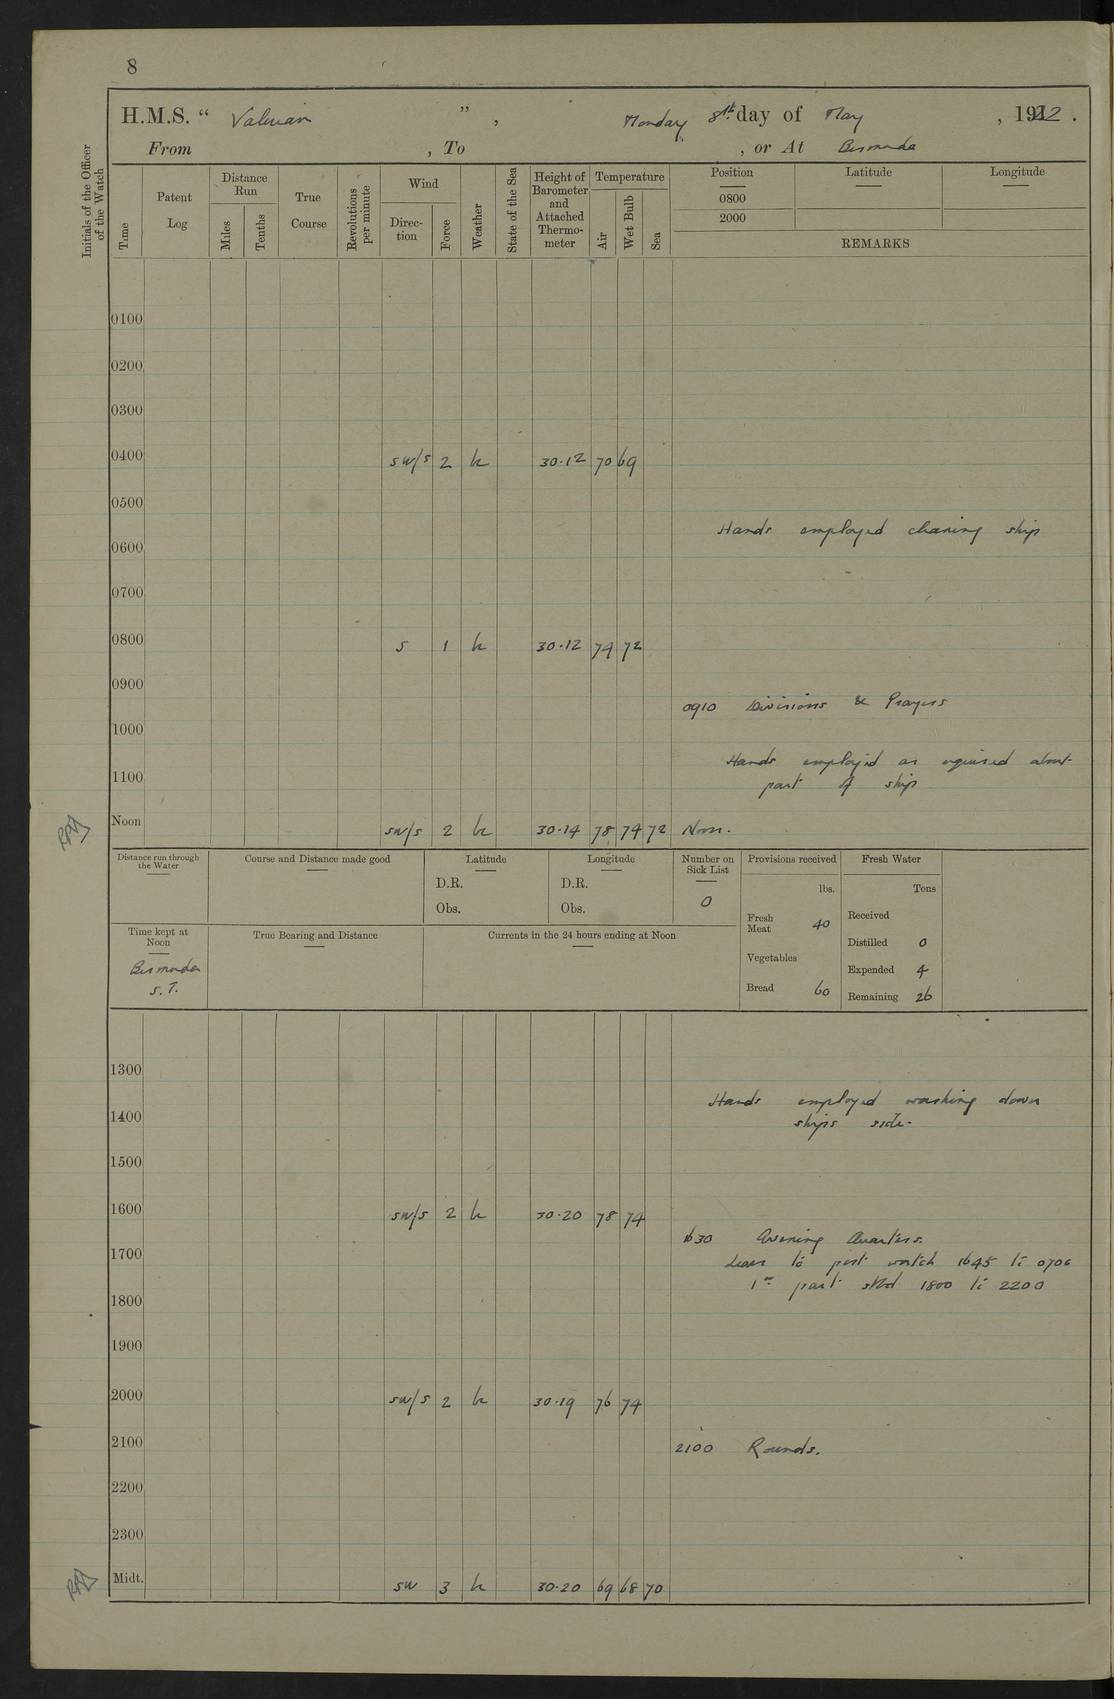 8
H.M.S. “ Valerian ” , Monday 8th day of May , 1922 .
From , To , or At Bermuda
Initials of the Officer of the Watch
Time
Patent Log
Distance Run
Miles
Tenths
True Course
Revolutions per minute
Wind
Direction
Force
Weather
State of the Sea
Height of Barometer and Attached Thermometer
Temperature
Air
Wet Bulb
Sea
Position Latitude Longitude
0800
2000
REMARKS
0100
0200
0300
0400 SW/S 2 b 30.12 70 69
0500
Hands employed cleaning ship
0600
0700
0800 S 1 b 30.12 74 72
0900
0910 Divisions & Prayers
1000
Hands employed as required about
1100
part of ship
Noon SW/S 2 b 30.14 78 74 72 Noon.
Distance run through the Water
Course and Distance made good
Latitude
D.R.
Obs.
Longitude
D.R.
Obs.
Number on Sick List
0
Provisions received
lbs.
Fresh Meat 40
Vegetables
Bread 60
Fresh Water
Tons
Received
Distilled 0
Expended 4
Remaining 26
Time kept at Noon
Bermuda
S.T.
True Bearing and Distance
Currents in the 24 hours ending at Noon
1300
Hands employed washing down
1400
ships side.
1500
1600 SW/S 2 b 30.20 78 74
1630 Evening Quarters.
1700
Leave to port watch 1645 to 0700
1st part stbd 1800 to 2200
1800
1900
2000 SW/S 2 b 30.19 76 74
2100
2100 Rounds.
2200
2300
Midt. SW 3 b 30.20 69 68 70